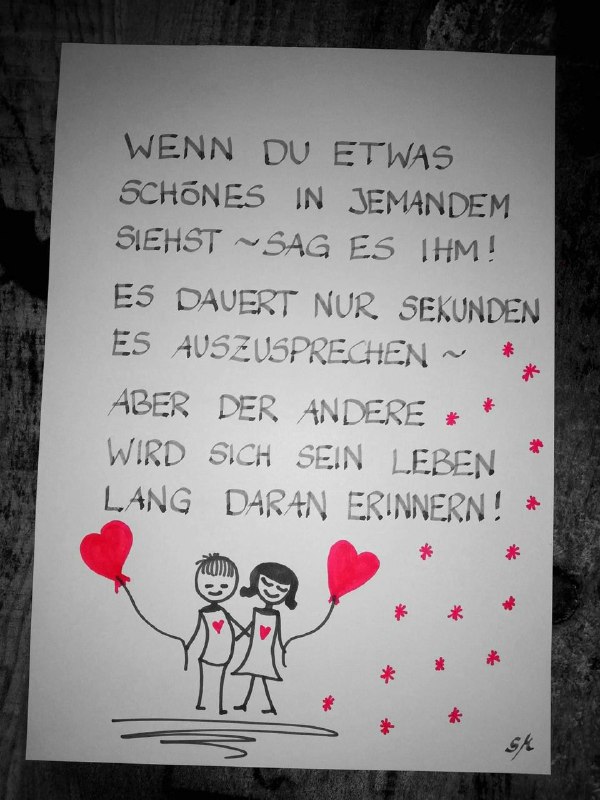 WENN DU ETWAS
SCHÖNES IN JEMANDEM
SIEHST ~ SAG ES IHM!
ES DAUERT NUR SEKUNDEN
ES AUSZUSPRECHEN ~
ABER DER ANDERE
WIRD SICH SEIN LEBEN
LANG DARAN ERINNERN!